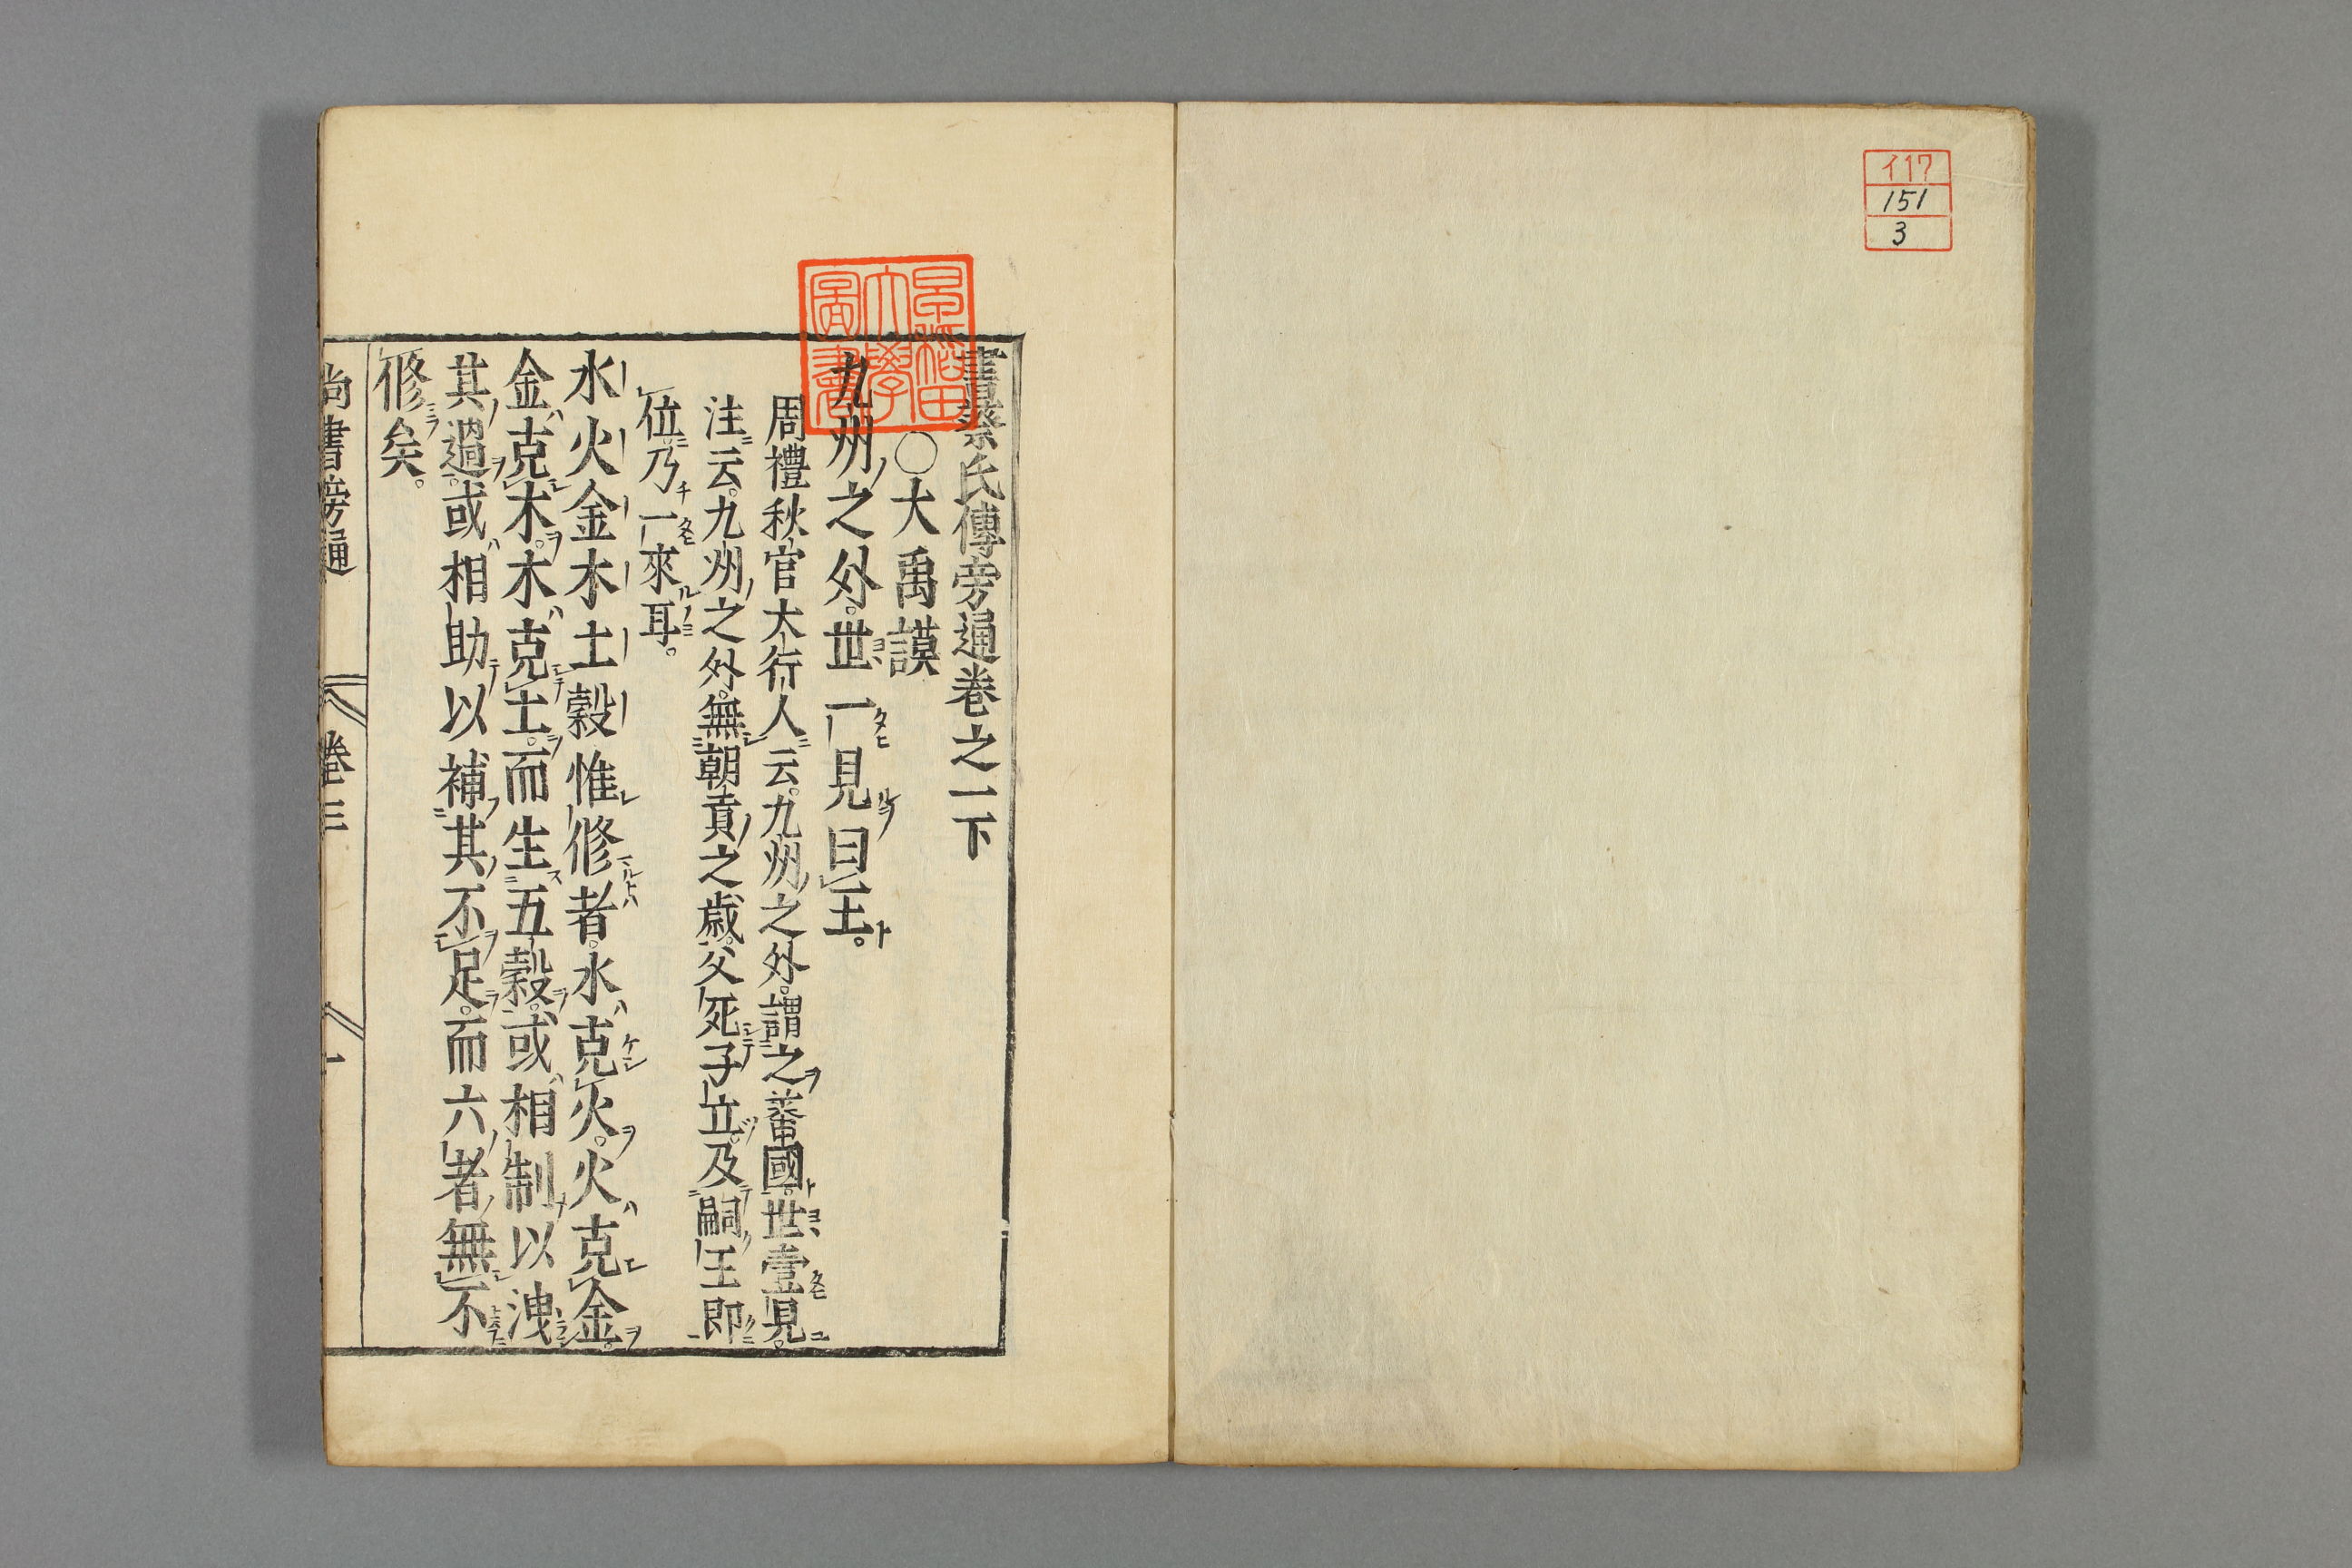 イ17
151
3
早稲田
大學
圖書
書蔡氏傳旁通卷之一下
○大禹謨
九州之外。世一見曰王。
周禮秋官大行人云。九州之外。謂之蕃國。世壹見。
注云。九州之外。無朝貢之歳。父死子立。及嗣王即
位乃一來耳。
水火金木土穀惟修者。水克火。火克金。
金克木。木克土。而生五穀。或相制以洩
其過。或相助以補其不足。而六者無不
修矣。
尚書旁通 卷三 一